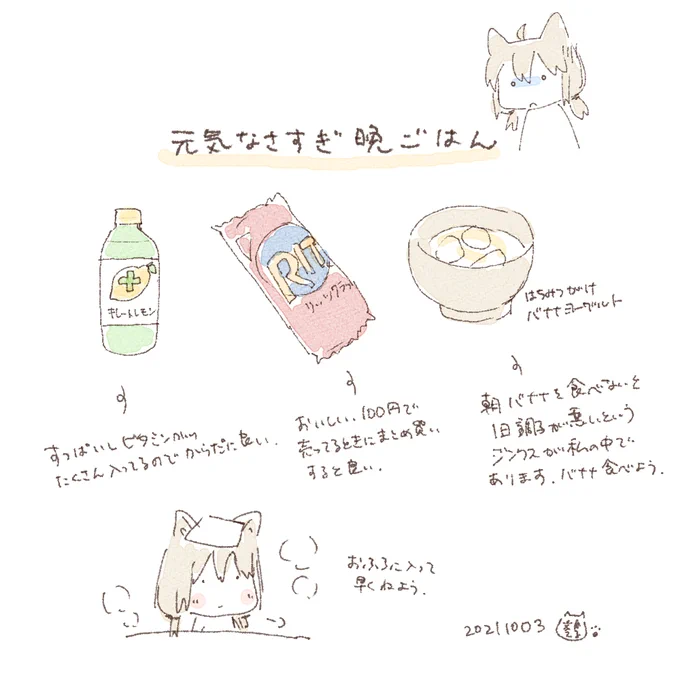 元気なさすぎ晩ごはん
キレートレモン
RIT
リッツクラッカ
はちみつがけ
バナナヨーグルト
すっぱいしビタミンが
たくさん入ってるのでからだに良い.
おいしい.100円で
売ってるときにまとめ買い
すると良い.
朝バナナを食べないと
1日調子が悪いという
ジンクスが私の中で
あります.バナナ食べよう.
おふろに入って
早くねよう.
20211003